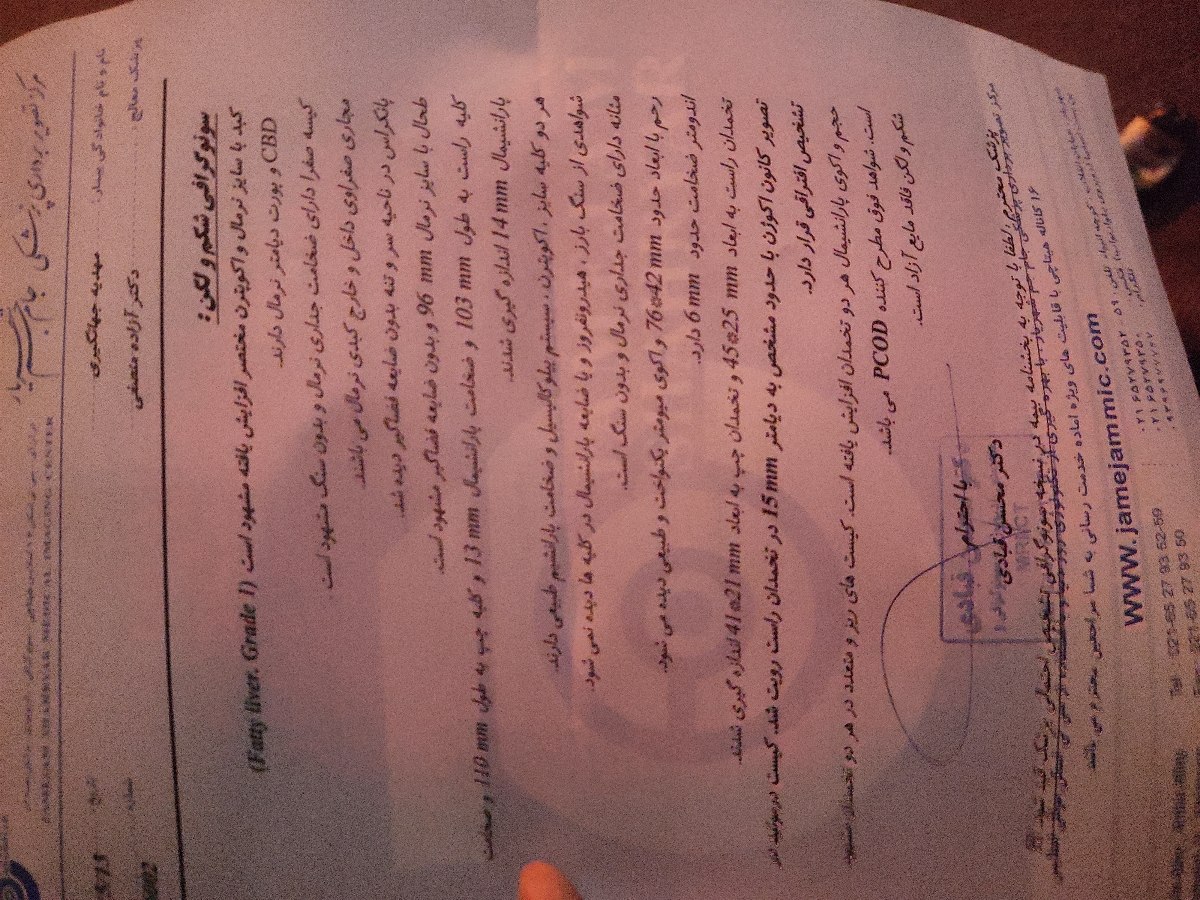 مرکز تصویر برداری پزشکی جام جم شهریار
JAMEJAM SHAHRIYAR MEDICAL IMAGING CENTER
نام و نام خانوادگی بیمار: مهدیه جهانگیری تاریخ
پزشک معالج دکتر آزاده متصفی شماره
سونوگرافی شکم و لگن:
کبد با سایز نرمال و اکوپترن مختصر افزایش یافته مشهود است (Fatty liver. Grade 1)
CBD و پورت دیامتر نرمال دارند.
کیسه صفرا دارای ضخامت جداری نرمال و بدون سنگ مشهود است
مجاری صفراوی داخل و خارج کبدی نرمال می باشند.
پانکراس در ناحیه سر و تنه بدون ضایعه فضاگیر دیده شد.
طحال با سایز نرمال 96 mm و بدون ضایعه فضاگیر مشهود است.
کلیه راست به طول 103 mm و ضخامت پارانشیمال 13 mm و کلیه چپ به طول 110 mm و ضخامت
پارانشیمال 14 mm اندازه گیری شدند.
هر دو کلیه سایز ، اکوپترن ، سیستم پیلوکالیسیل و ضخامت پارانشیم طبیعی دارند.
شواهدی از سنگ بارز ، هیدرونفروز و یا ضایعه پارانشیمال در کلیه ها دیده نمی شود.
مثانه دارای ضخامت جداری نرمال و بدون سنگ است.
رحم با ابعاد حدود 76*42 mm و اکوی میومتر یکنواخت و طبیعی دیده می شود.
اندومتر ضخامت حدود 6 mm دارد.
تخمدان راست به ابعاد 45*25 mm و تخمدان چپ به ابعاد 41*21 mm اندازه گیری شدند.
تصویر کانون اکوژن با حدود مشخص به دیامتر 15 mm در تخمدان راست رویت شد. کیست درموئید در
تشخیص افتراقی قرار دارد.
حجم و اکوی پارانشیمال هر دو تخمدان افزایش یافته است. کیست های ریز و متعدد در هر دو تخمدان مشهود
است. شواهد فوق مطرح کننده PCOD می باشد.
شکم و لگن فاقد مایع آزاد است.
با احترام
دکتر محسن قبادی
پزشک محترم لطفا با توجه به بخشنامه بیمه در نسخه سونوگرافی تشخیص احتمالی پزشک قید شود
۱۶ کاناله هیتاچی با قابلیت های ویژه آماده خدمت رسانی به شما مراجعین محترم می باشد
www.jamejammic.com
Tel : 021-65 27 93 52-59